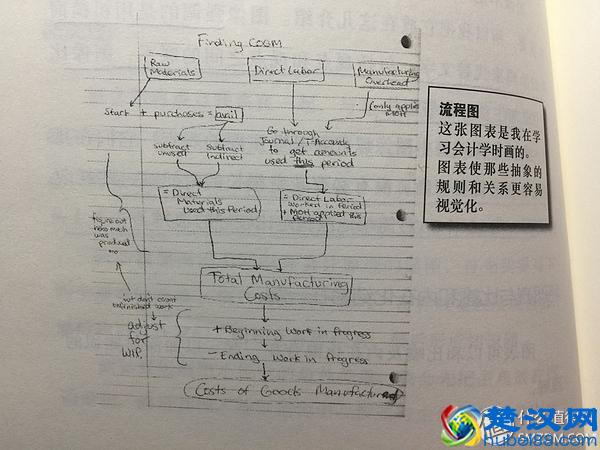 Finding COGM
Raw
Materials
Direct Labor
Manufacturing
Overhead
(only applied
MOH)
Start + purchases = avail
Go through
Journal / T-Accounts
to get amounts
used this period
subtract
unused
subtract
Indirect
= Direct
Materials
Used this Period
= Direct Labor
worked in Period
+ MOH applied this
period
figure out
how much
was
produced
Total Manufacturing
Costs
but don't count
unfinished work
adjust
for
WIP.
+ Beginning Work in Progress
- Ending Work in Progress
Costs of Goods Manufactured
流程图
这张图表是我在学
习会计学时画的。
图表使那些抽象的
规则和关系更容易
视觉化。
楚汉网
hubei88.com